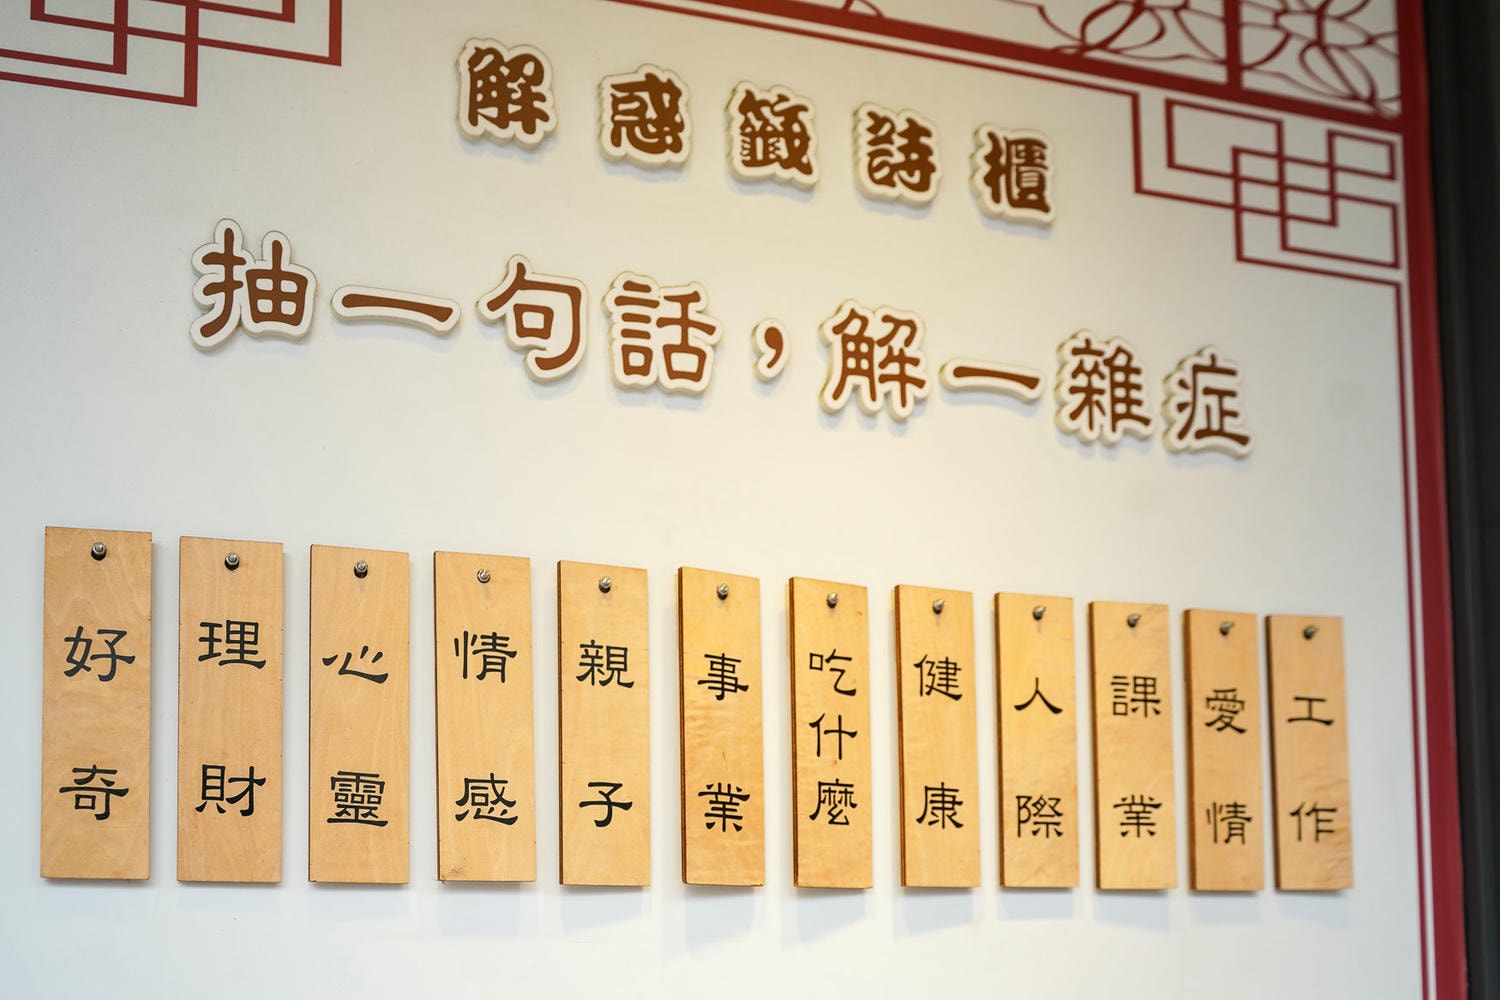 解惑籤詩櫃
抽一句話，解一雜症
好奇
理財
心靈
情感
親子
事業
吃什麼
健康
人際
課業
愛情
工作